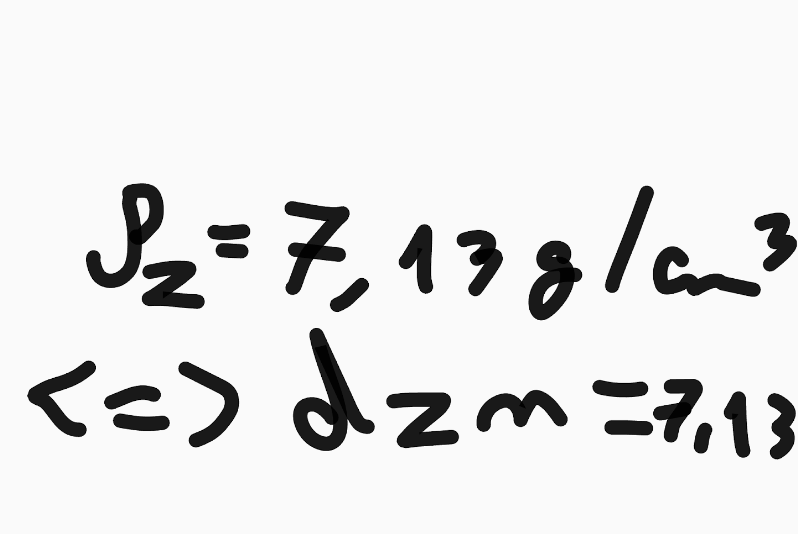 ρz = 7,13 g/cm³
<=> dzn = 7,13